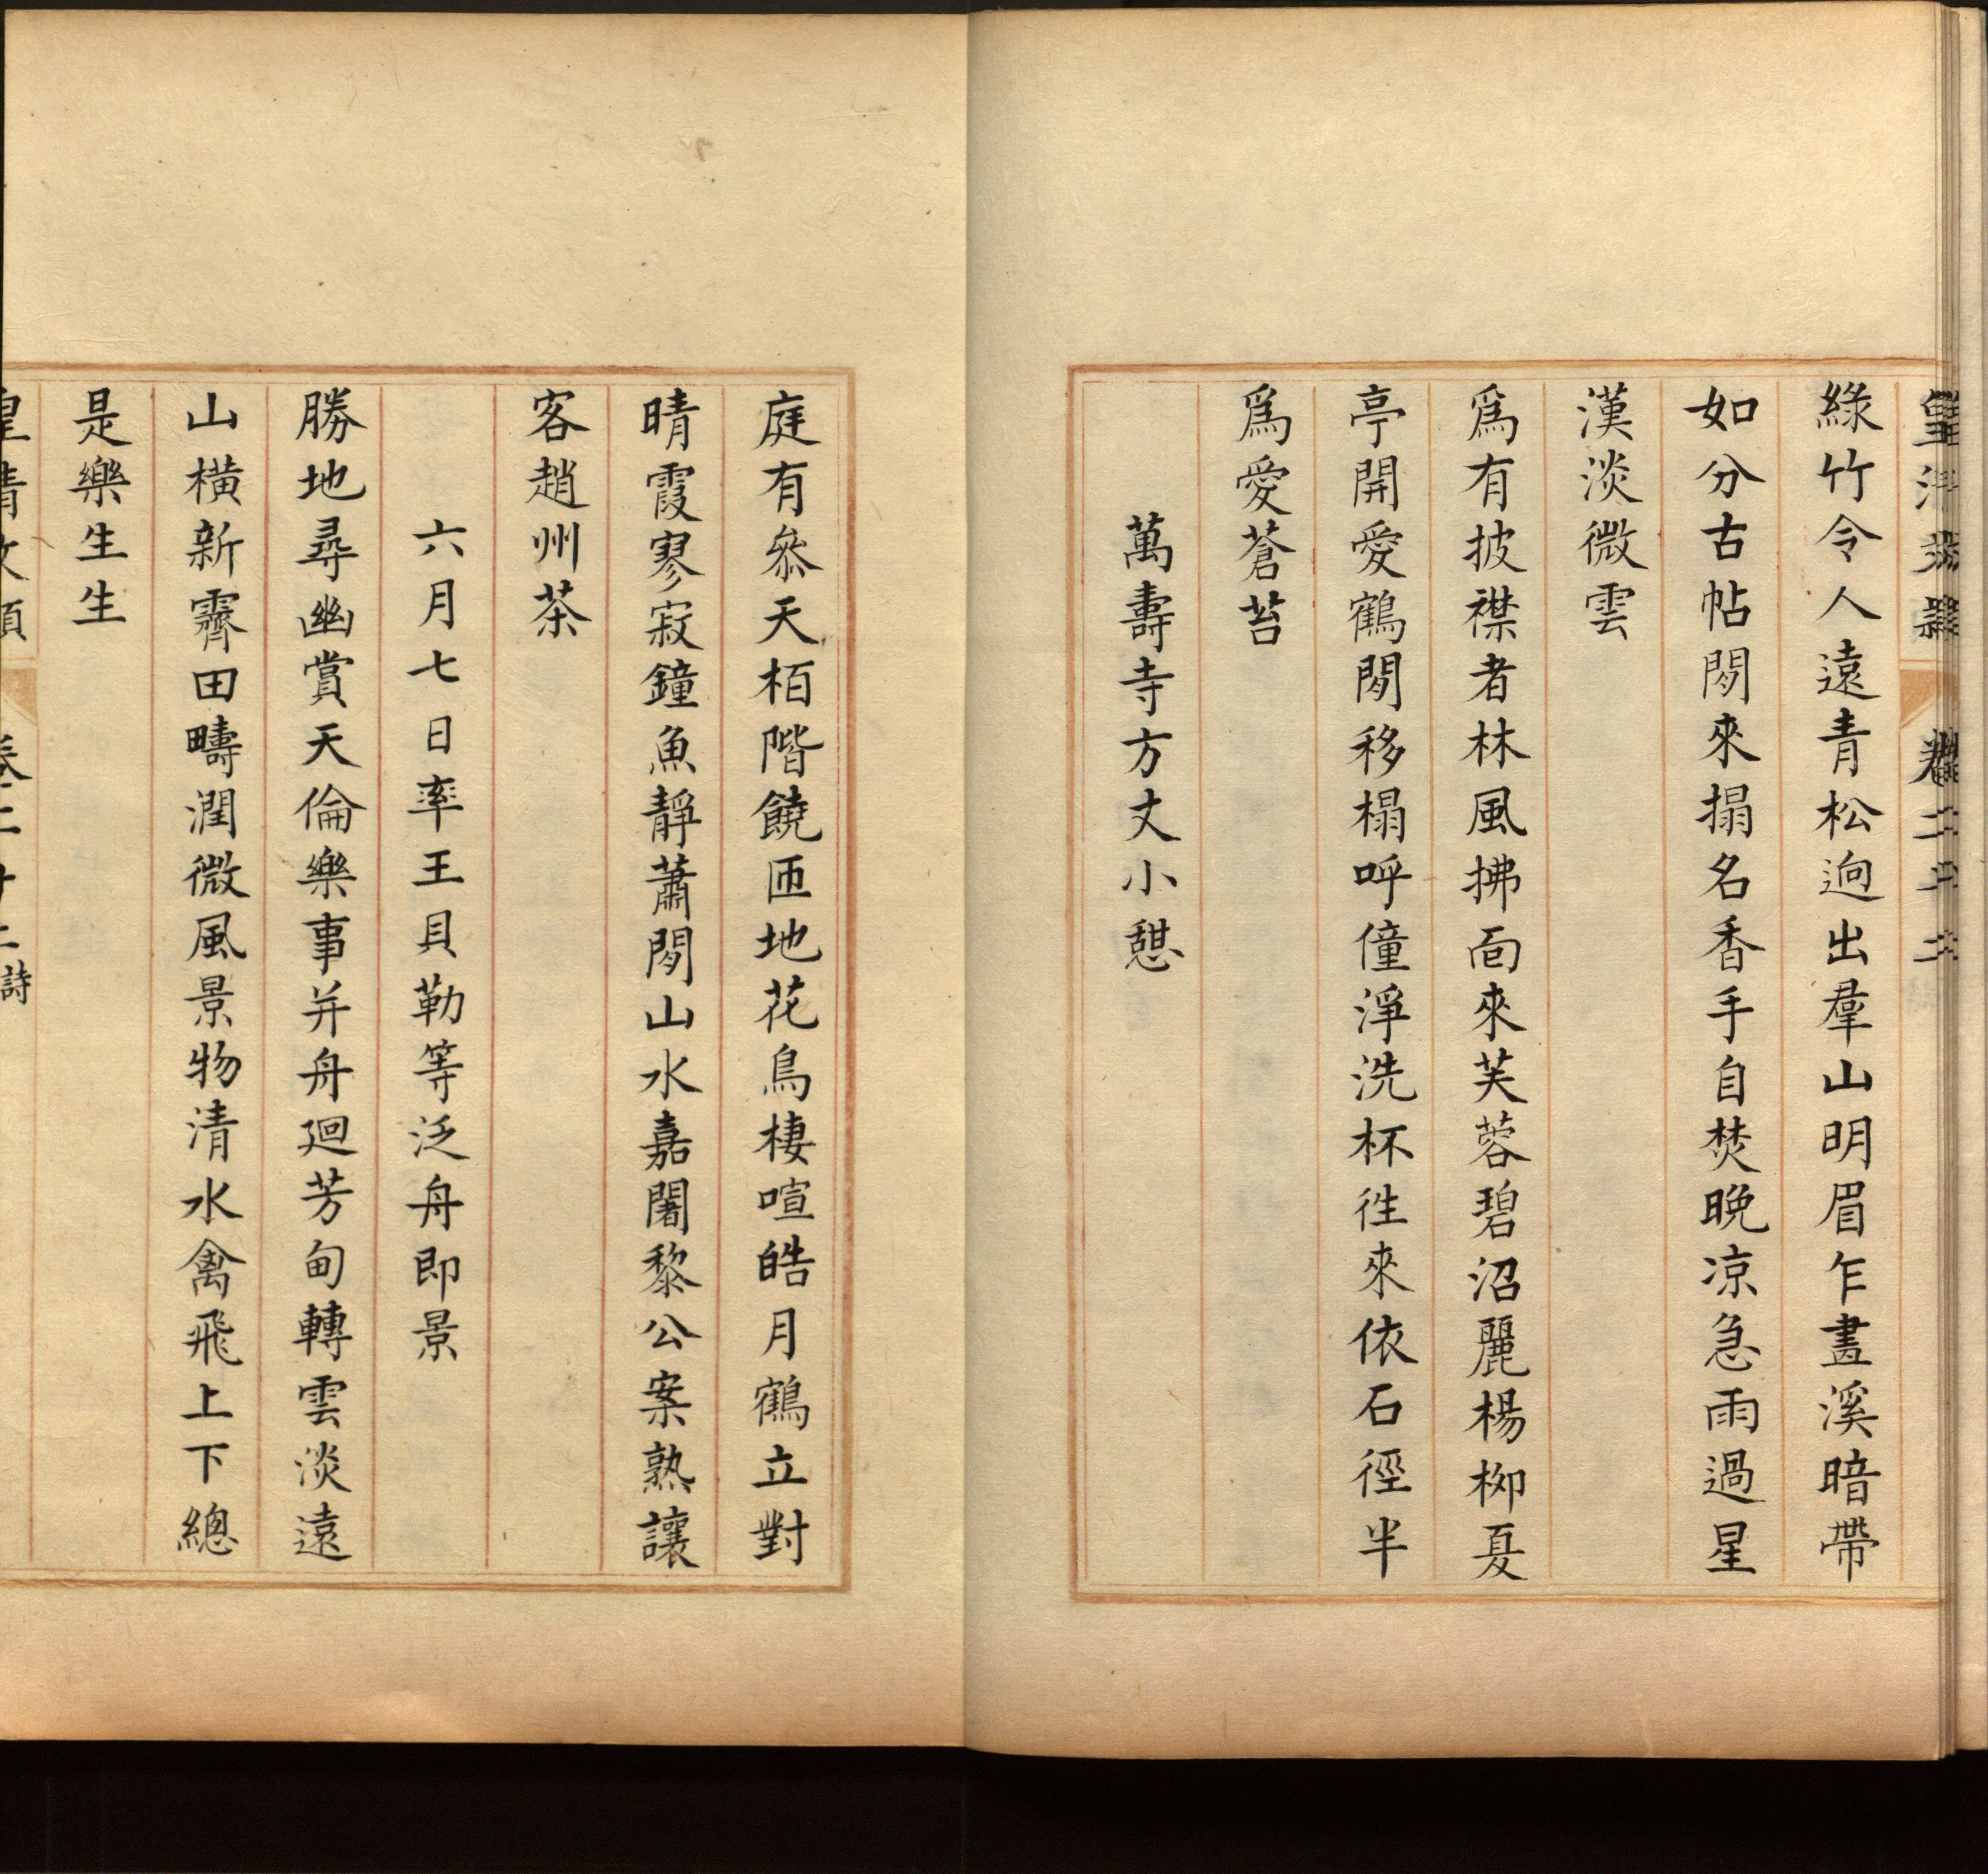 皇清文穎 卷二十二
綠竹令人遠青松逈出羣山明眉乍畫溪暗帶
如分古帖閒來搨名香手自焚晚凉急雨過星
漢淡微雲
爲有披襟者林風拂面來芙蓉碧沼麗楊柳夏
亭開愛鶴閒移榻呼僮淨洗杯徃來依石徑半
爲愛蒼苔
萬壽寺方丈小憇
庭有叅天栢階饒匝地花鳥棲喧皓月鶴立對
晴霞寥寂鐘魚靜蕭閒山水嘉闍黎公案熟讓
客趙州茶
六月七日率王貝勒等泛舟即景
勝地尋幽賞天倫樂事并舟廻芳甸轉雲淡遠
山橫新霽田疇潤微風景物清水禽飛上下總
是樂生生
皇清文穎 卷二十二 詩